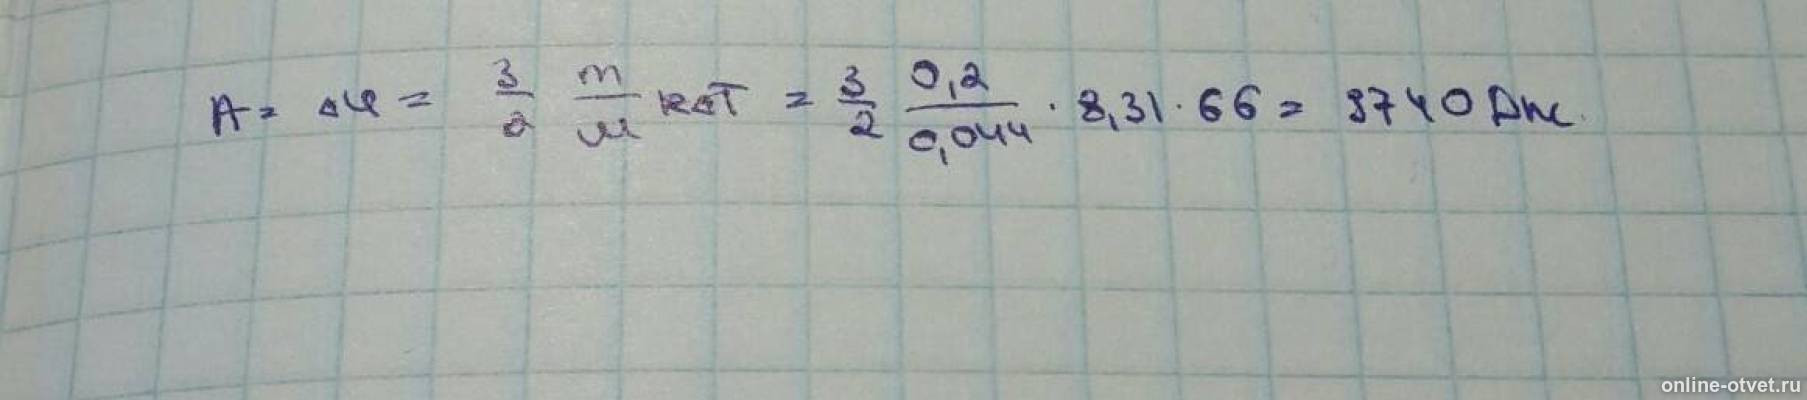 A = ΔU = 3/2 m/M RΔT = 3/2 0,2/0,044 · 8,31 · 66 = 3740 Дж.
online-otvet.ru